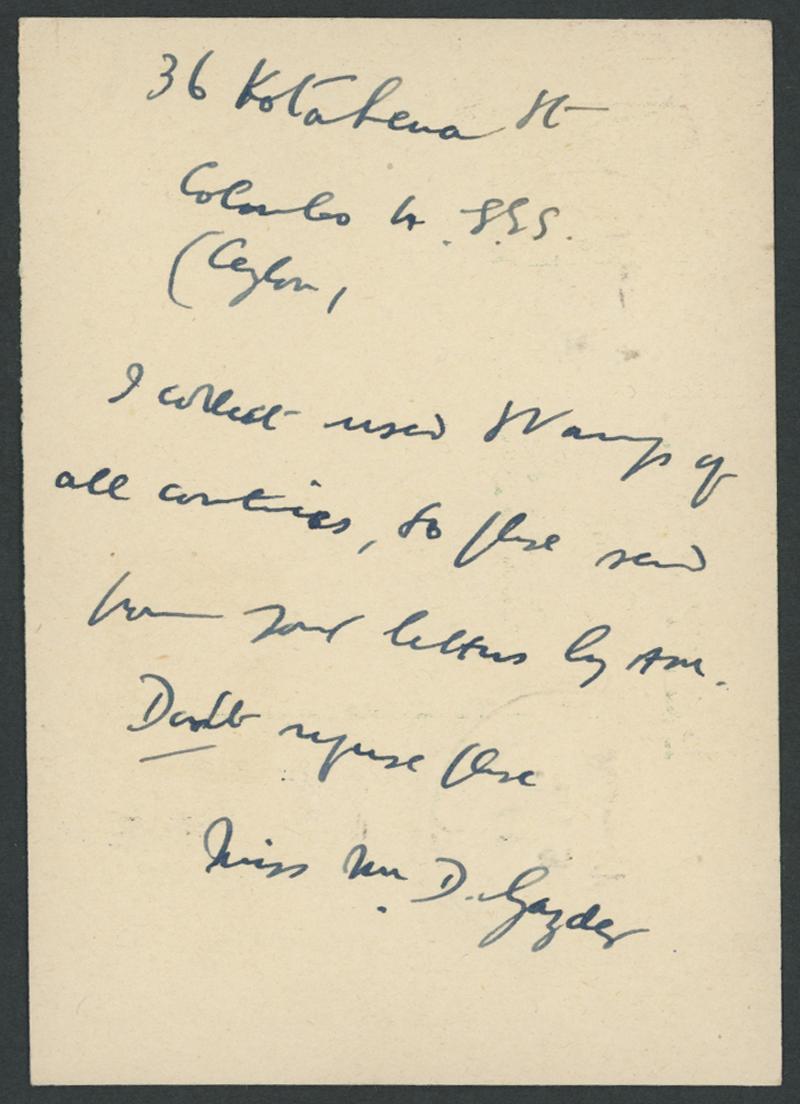 36 Kotahena St
Colombo
(Ceylon)
I collect used Stamps of
all contries, so plese send
from your letters by
Don't refuse plese
Miss M. D. Gazder